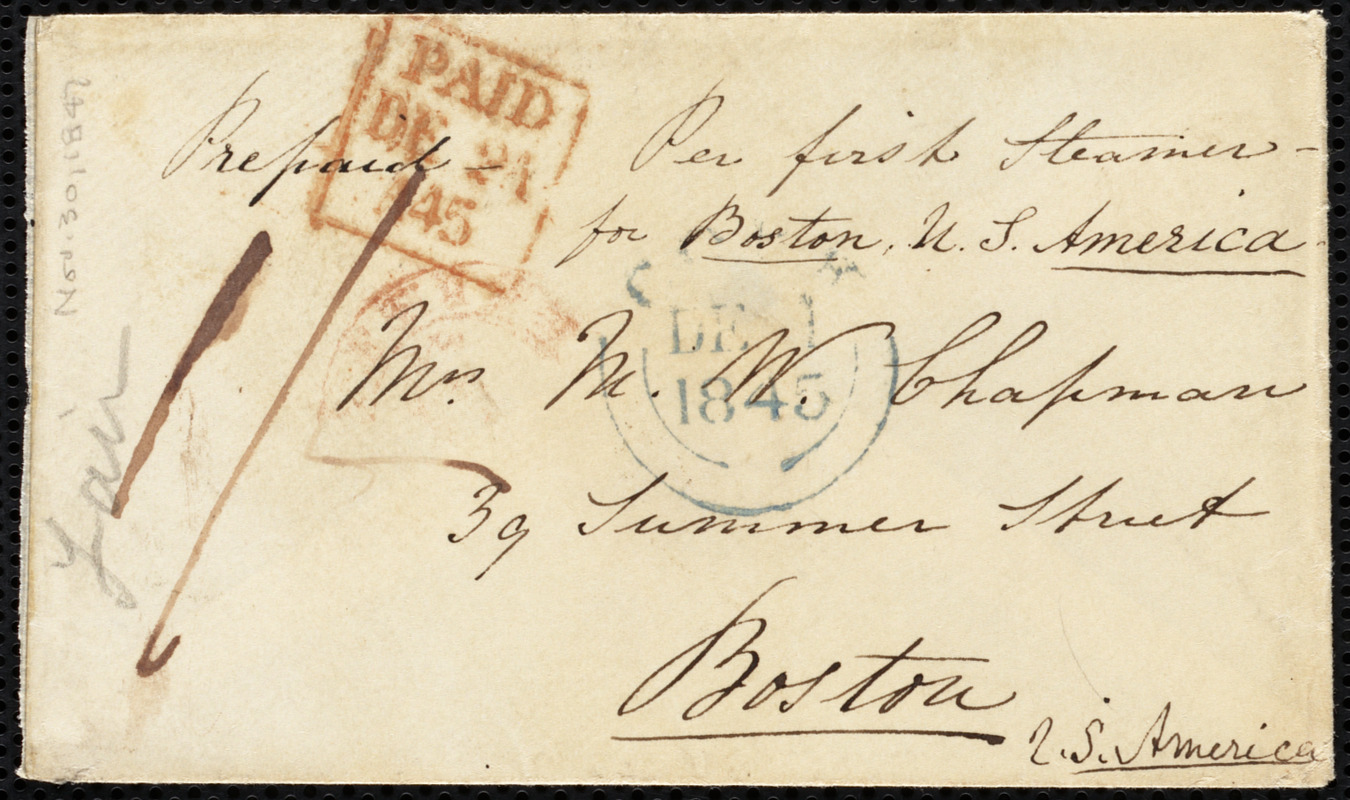 PAID
DE 2
845
Prepaid - Per first Steamer -
for Boston, U. S. America.
DE 1
1845
Mrs. M. W. Chapman
39 Summer Street
Boston
U.S. America
1/
Nov. 30, 1847